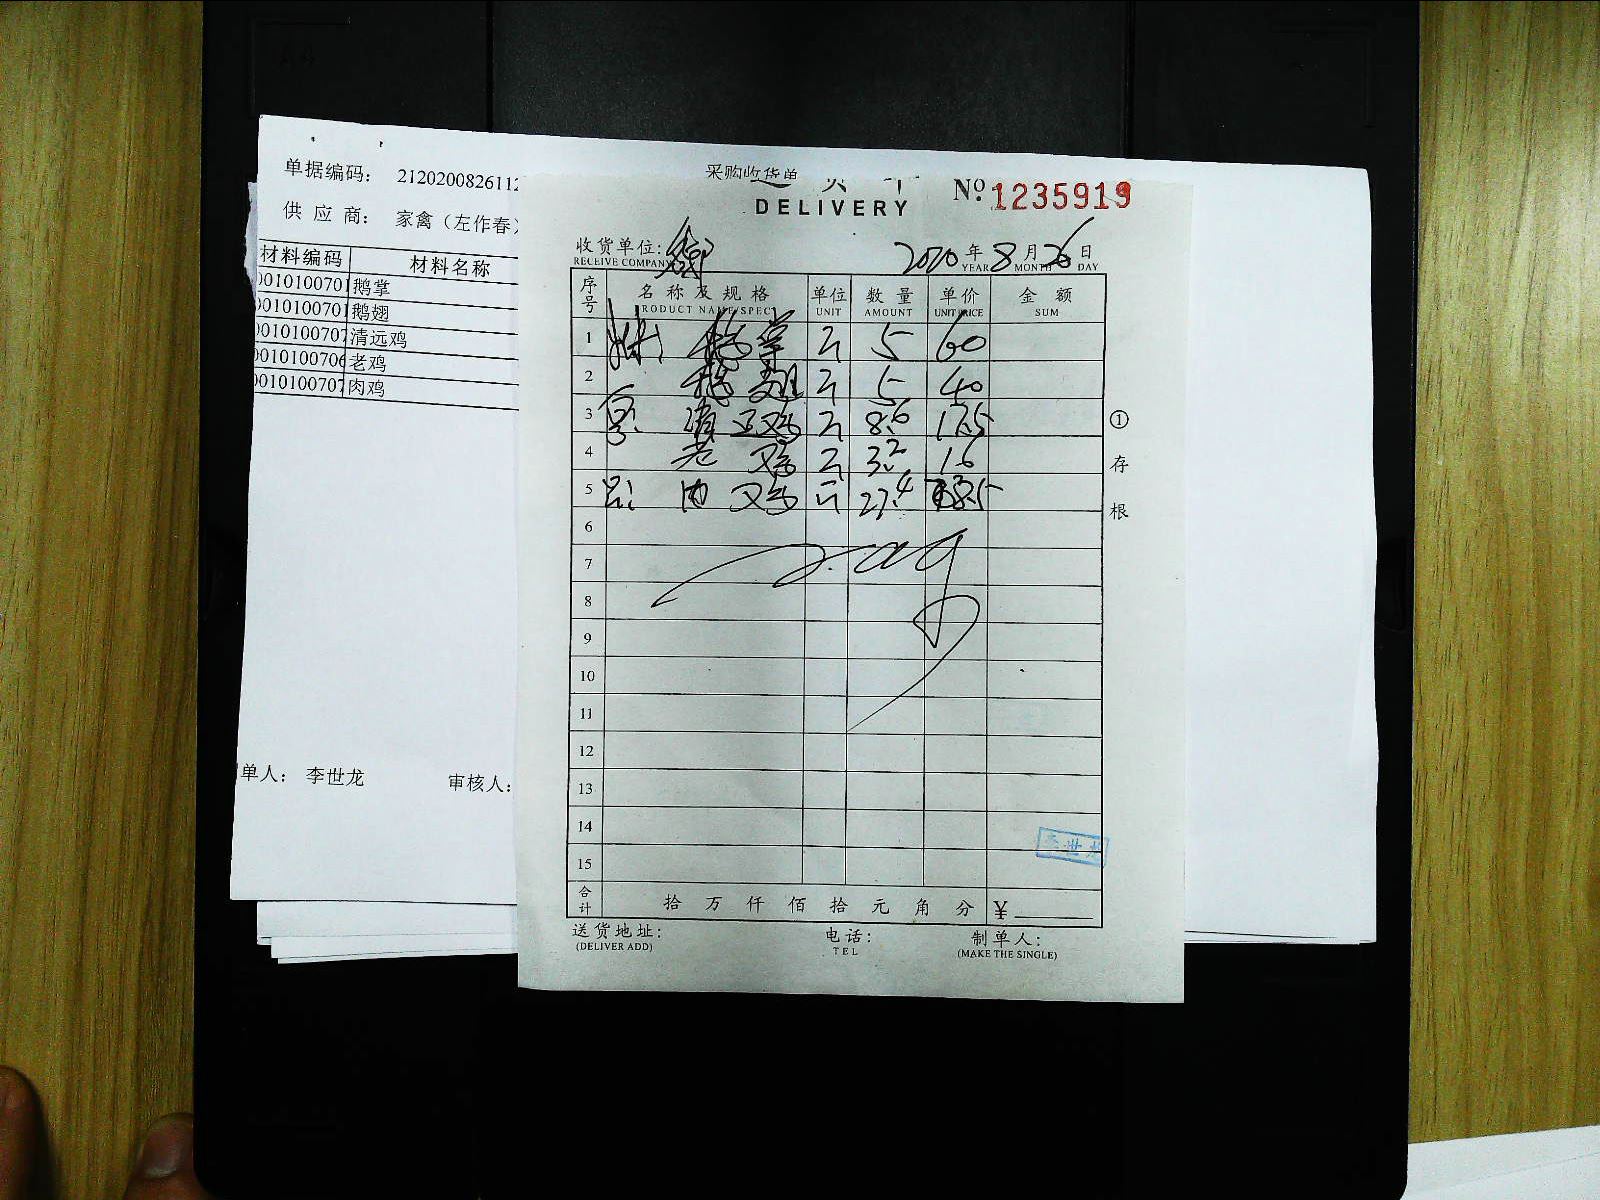 单据编码： 2120200826112
采购收货单
供 应 商： 家禽（左作春）
材料编码 材料名称
0010100701 鹅掌
0010100701 鹅翅
0010100707 清远鸡
0010100706 老鸡
0010100707 肉鸡
单人： 李世龙 审核人：
DELIVERY
№. 1235919
收货单位:
RECEIVE COMPANY
2020 年 8 月 26 日
YEAR MONTH DAY
序号 名称及规格 单位 数量 单价 金额
PRODUCT NAME/SPECT UNIT AMOUNT UNIT PRICE SUM
1 鹅掌 斤 5 60
2 鹅翅 斤 5 40
3 清远鸡 斤 8.6 17.5
4 老鸡 斤 3.2 16
5 肉鸡 斤 27.4
6
7
8
9
10
11
12
13
14
15
① 存根
合计 拾 万 仟 佰 拾 元 角 分 ¥
李世龙
送货地址: 电话: 制单人:
(DELIVER ADD) TEL (MAKE THE SINGLE)